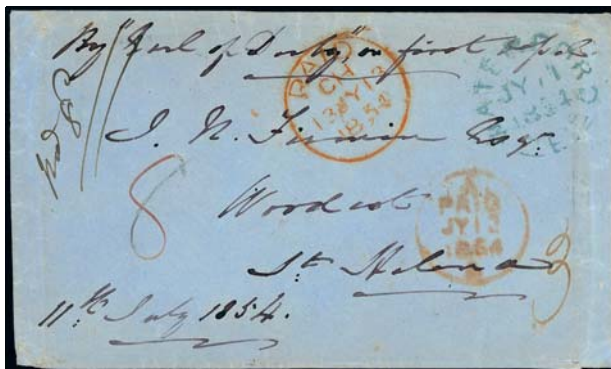 By "Earl of Derby", or first opp.
PAID
CH
13 JY 13
1854
WATERFORD
JY 11
1854
8
Esqr.
Woodcot
A
PAID
JY 13
1854
St. Helena
11th July 1854.